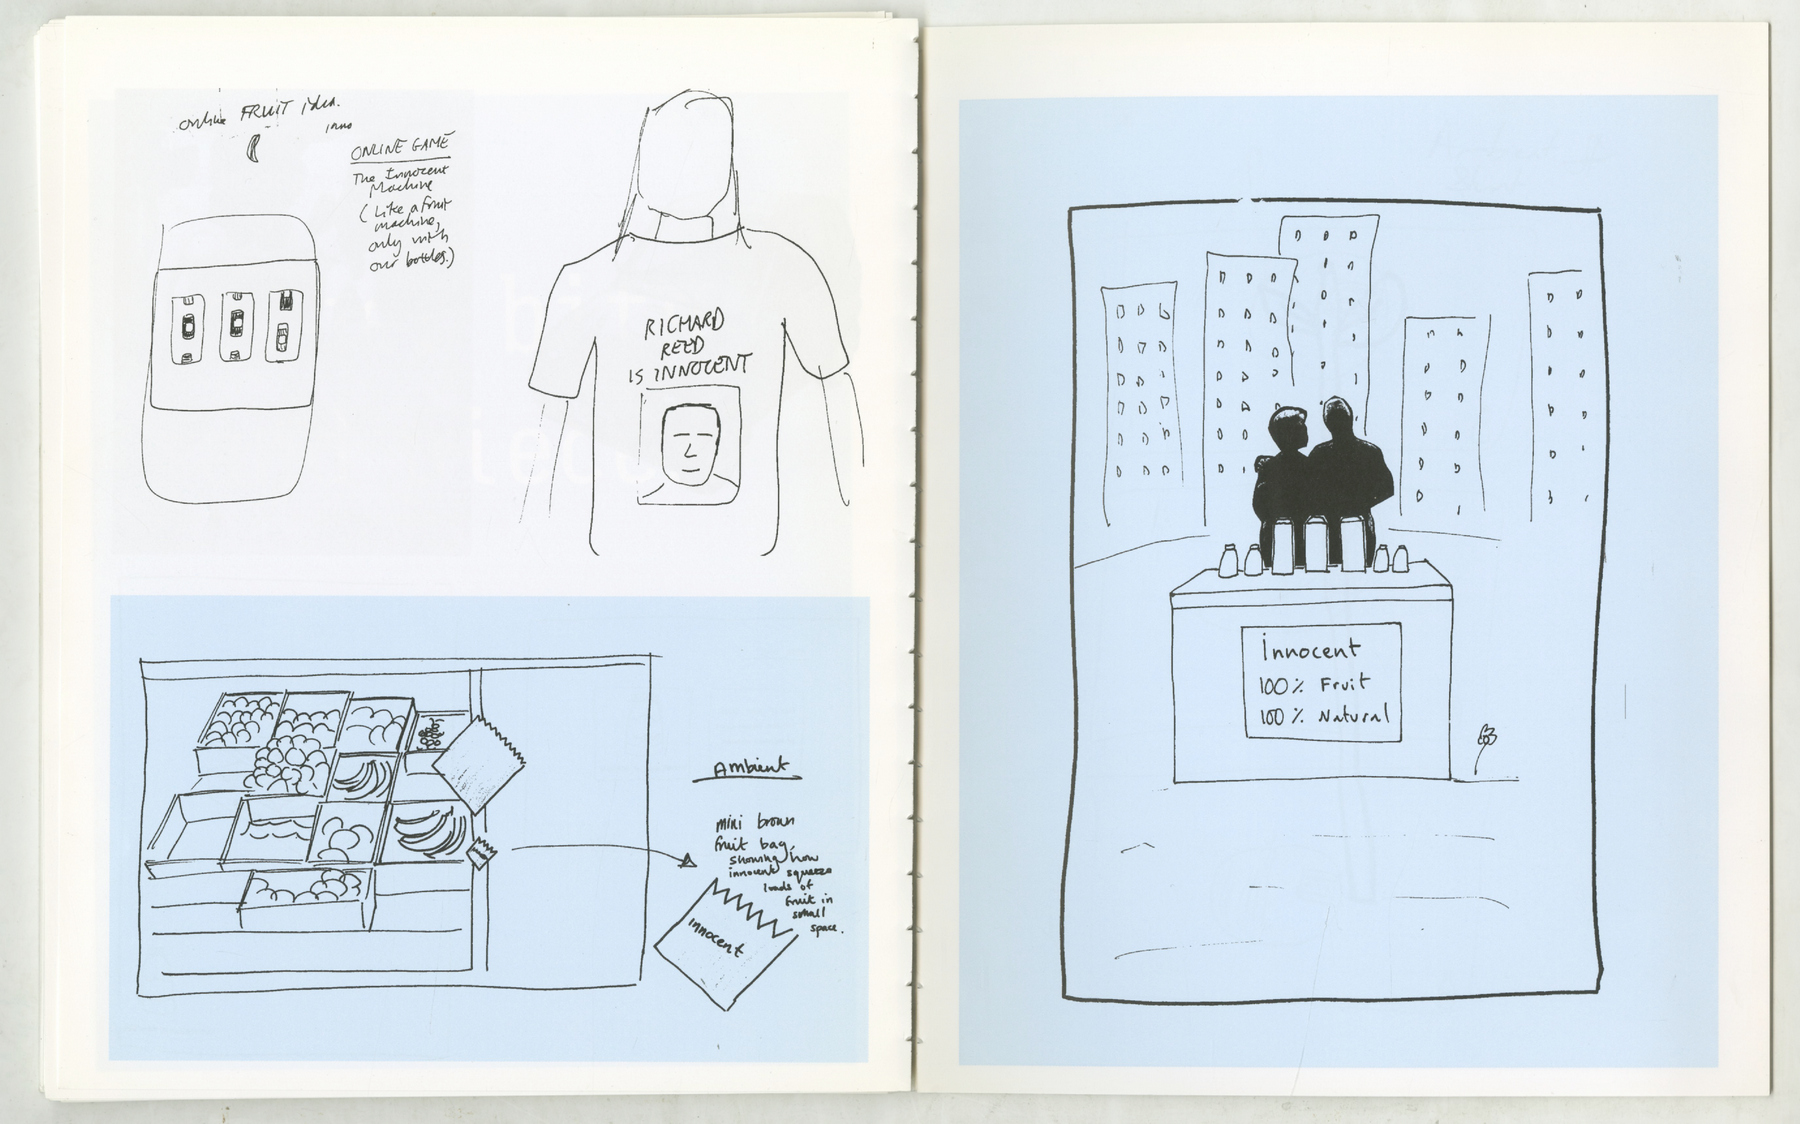 online FRUIT idea.
inno
ONLINE GAME
The Innocent
Machine
(Like a fruit
machine,
only with
our bottles.)
RICHARD
REED
IS INNOCENT
Ambient
mini brown
fruit bag,
showing how
innocent squeeze
loads of
fruit in
small
space.
innocent
innocent
100% Fruit
100% Natural